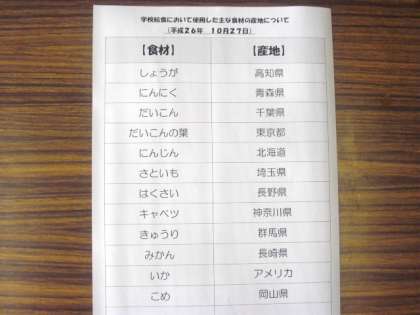 学校給食において使用した主な食材の産地について
（平成26年　10月27日）
【食材】　【産地】
しょうが　高知県
にんにく　青森県
だいこん　千葉県
だいこんの葉　東京都
にんじん　北海道
さといも　埼玉県
はくさい　長野県
キャベツ　神奈川県
きゅうり　群馬県
みかん　長崎県
いか　アメリカ
こめ　岡山県